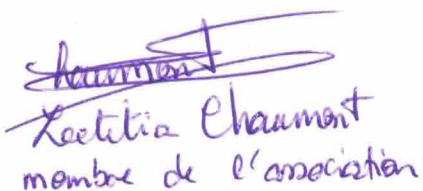 Chaumont
Laetitia Chaumont
membre de l'association